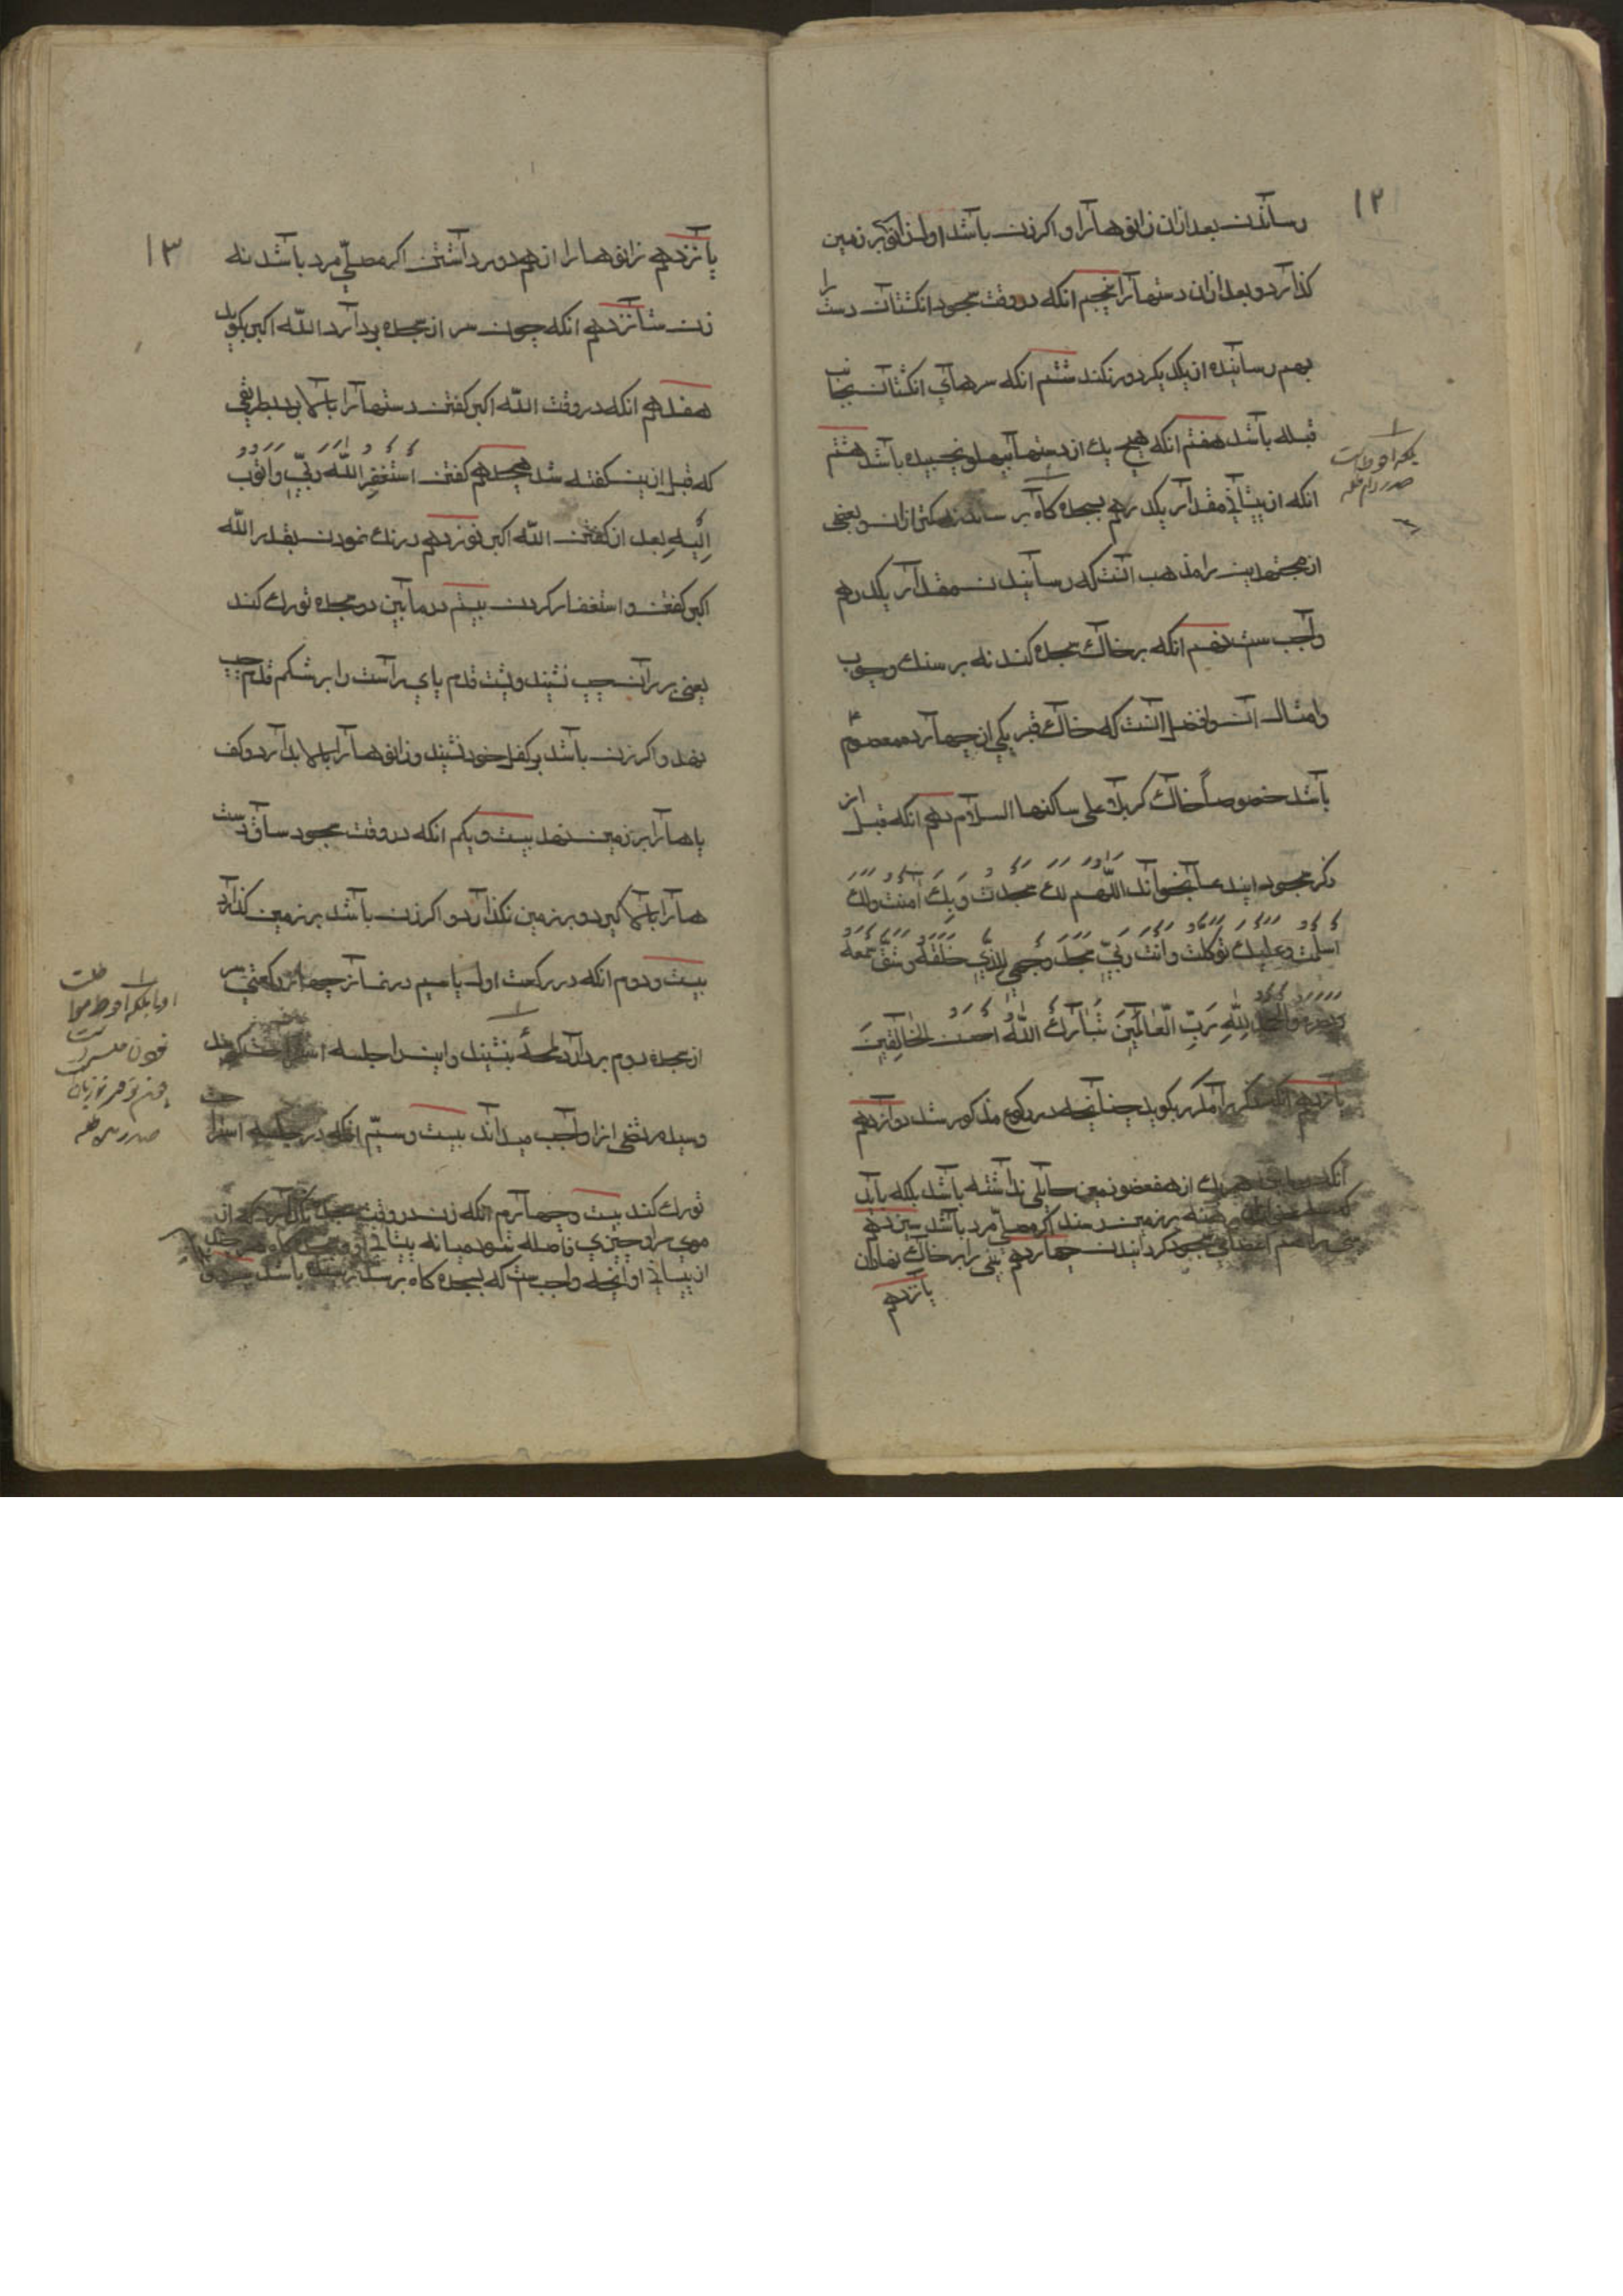 ۱۲
رسانیدن بعد ازان زانوها را و اکر زن باشد اول زانو بر زمین
کذارد و بعد ازان دستها را پنجم انکه در وقت سجود انکشتان دست را
بهم رسانیده از یکدیکر دور نکند ششم انکه سرهای انکشتان بجانب
قبله باشد هفتم انکه هیچ یك از دستها بپهلو نچسبیده باشد هشتم
انکه از پیشانی مقدار یکدرهم بسجده کاه برساند نه کمتر ازان و بعضی
از مجتهدین را مذهب آنست که رسانیدن مقدار یکدرهم
واجب ست نهم انکه بر خاك سجده کند نه بر سنك و چوب
و امثال ان و افضل انست که خاك قبر یکی از چهارده معصوم
باشد خصوصاً خاك کربلا علی ساکنها السلام دهم انکه قبل از
ذکر سجود ایندعا بخواند اللّهم لك سجدت وبك آمنت ولك
اسلمت وعلیك توکلت وانت ربّی سجد وجهی للذّی خلقه وشقّ سمعه
وبصره والحمد للّهِ رَبِّ الّعالَمینَ تَبارَكَ اللّهُ احسن الخالِقینَ
یازدهم انکه ذکر را مکرر بکوید چنانچه در رکوع مذکور شد دوازدهم
انکه میانه هر یك از هفت عضو و زمین حایلی نداشته باشد بلکه باید
که برهنه بر زمین رسند اکر مصلّی مرد باشد سیزدهم
بینی را هشتم اعضای سجود کردانیدن چهاردهم بینی را بر خاك نهادن
پانزدهم
بلکه احوط است
صدر دام ظله
۱۳
پانزدهم زانوها را از هم دور داشتن اکر مصلّی مرد باشد نه
زن شانزدهم انکه چون سر از سجده بردارد اللّه اکبر بکوید
هفدهم انکه در وقت اللّه اکبر کفتن دستها را بالا برد بطریقی
که قبل ازین کفته شد هیجدهم کفتن استغفر اللّه ربّی واتوب
اِلَیهِ بعد از کفتن اللّه اکبر نوزدهم درنك نمودن بقدر اللّه
اکبر کفتن و استغفار کردن بیستم در مابین دو سجده تورك کند
یعنی بر ران چپ نشیند و پشت قدم پای راست را بر شکم قدم چپ
نهد و اکر زن باشد بر کفل خود نشیند و زانوها را بالا بدارد و کف
پاها را بر زمین نهد بیست و یکم انکه در وقت سجود ساق دست
ها را بالا کیرد و بر زمین نکذارد و اکر زن باشد بر زمین کذارد
بیست و دوم انکه در رکعت اول یا سیم در نماز چهار رکعتی سر
از سجده دوم بردارد لمحهٔ بنشیند و اینرا جلسه استراحت کویند
و سید مرتضی انرا واجب میداند بیست و سیّم انکه در جلسه استراحت
تورك کند بیست و چهارم انکه زن در وقت سجده نکذارد که از
موی سر او چیزی فاصله شود میانه پیشانی او و سجده کاه
از پیشانی او انچه واجب ست که بسجده کاه برسد رسیده باشد